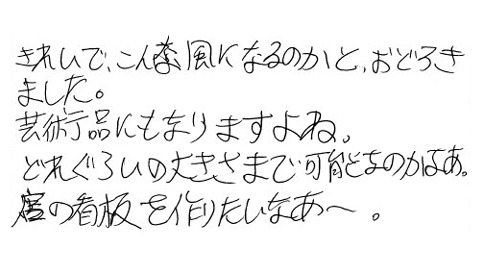 きれいで、こんな風になるのかと、おどろき
ました。
芸術品にもなりますよね。
どれぐらいの大きさまで可能なのかなあ。
店の看板を作りたいなあ〜。